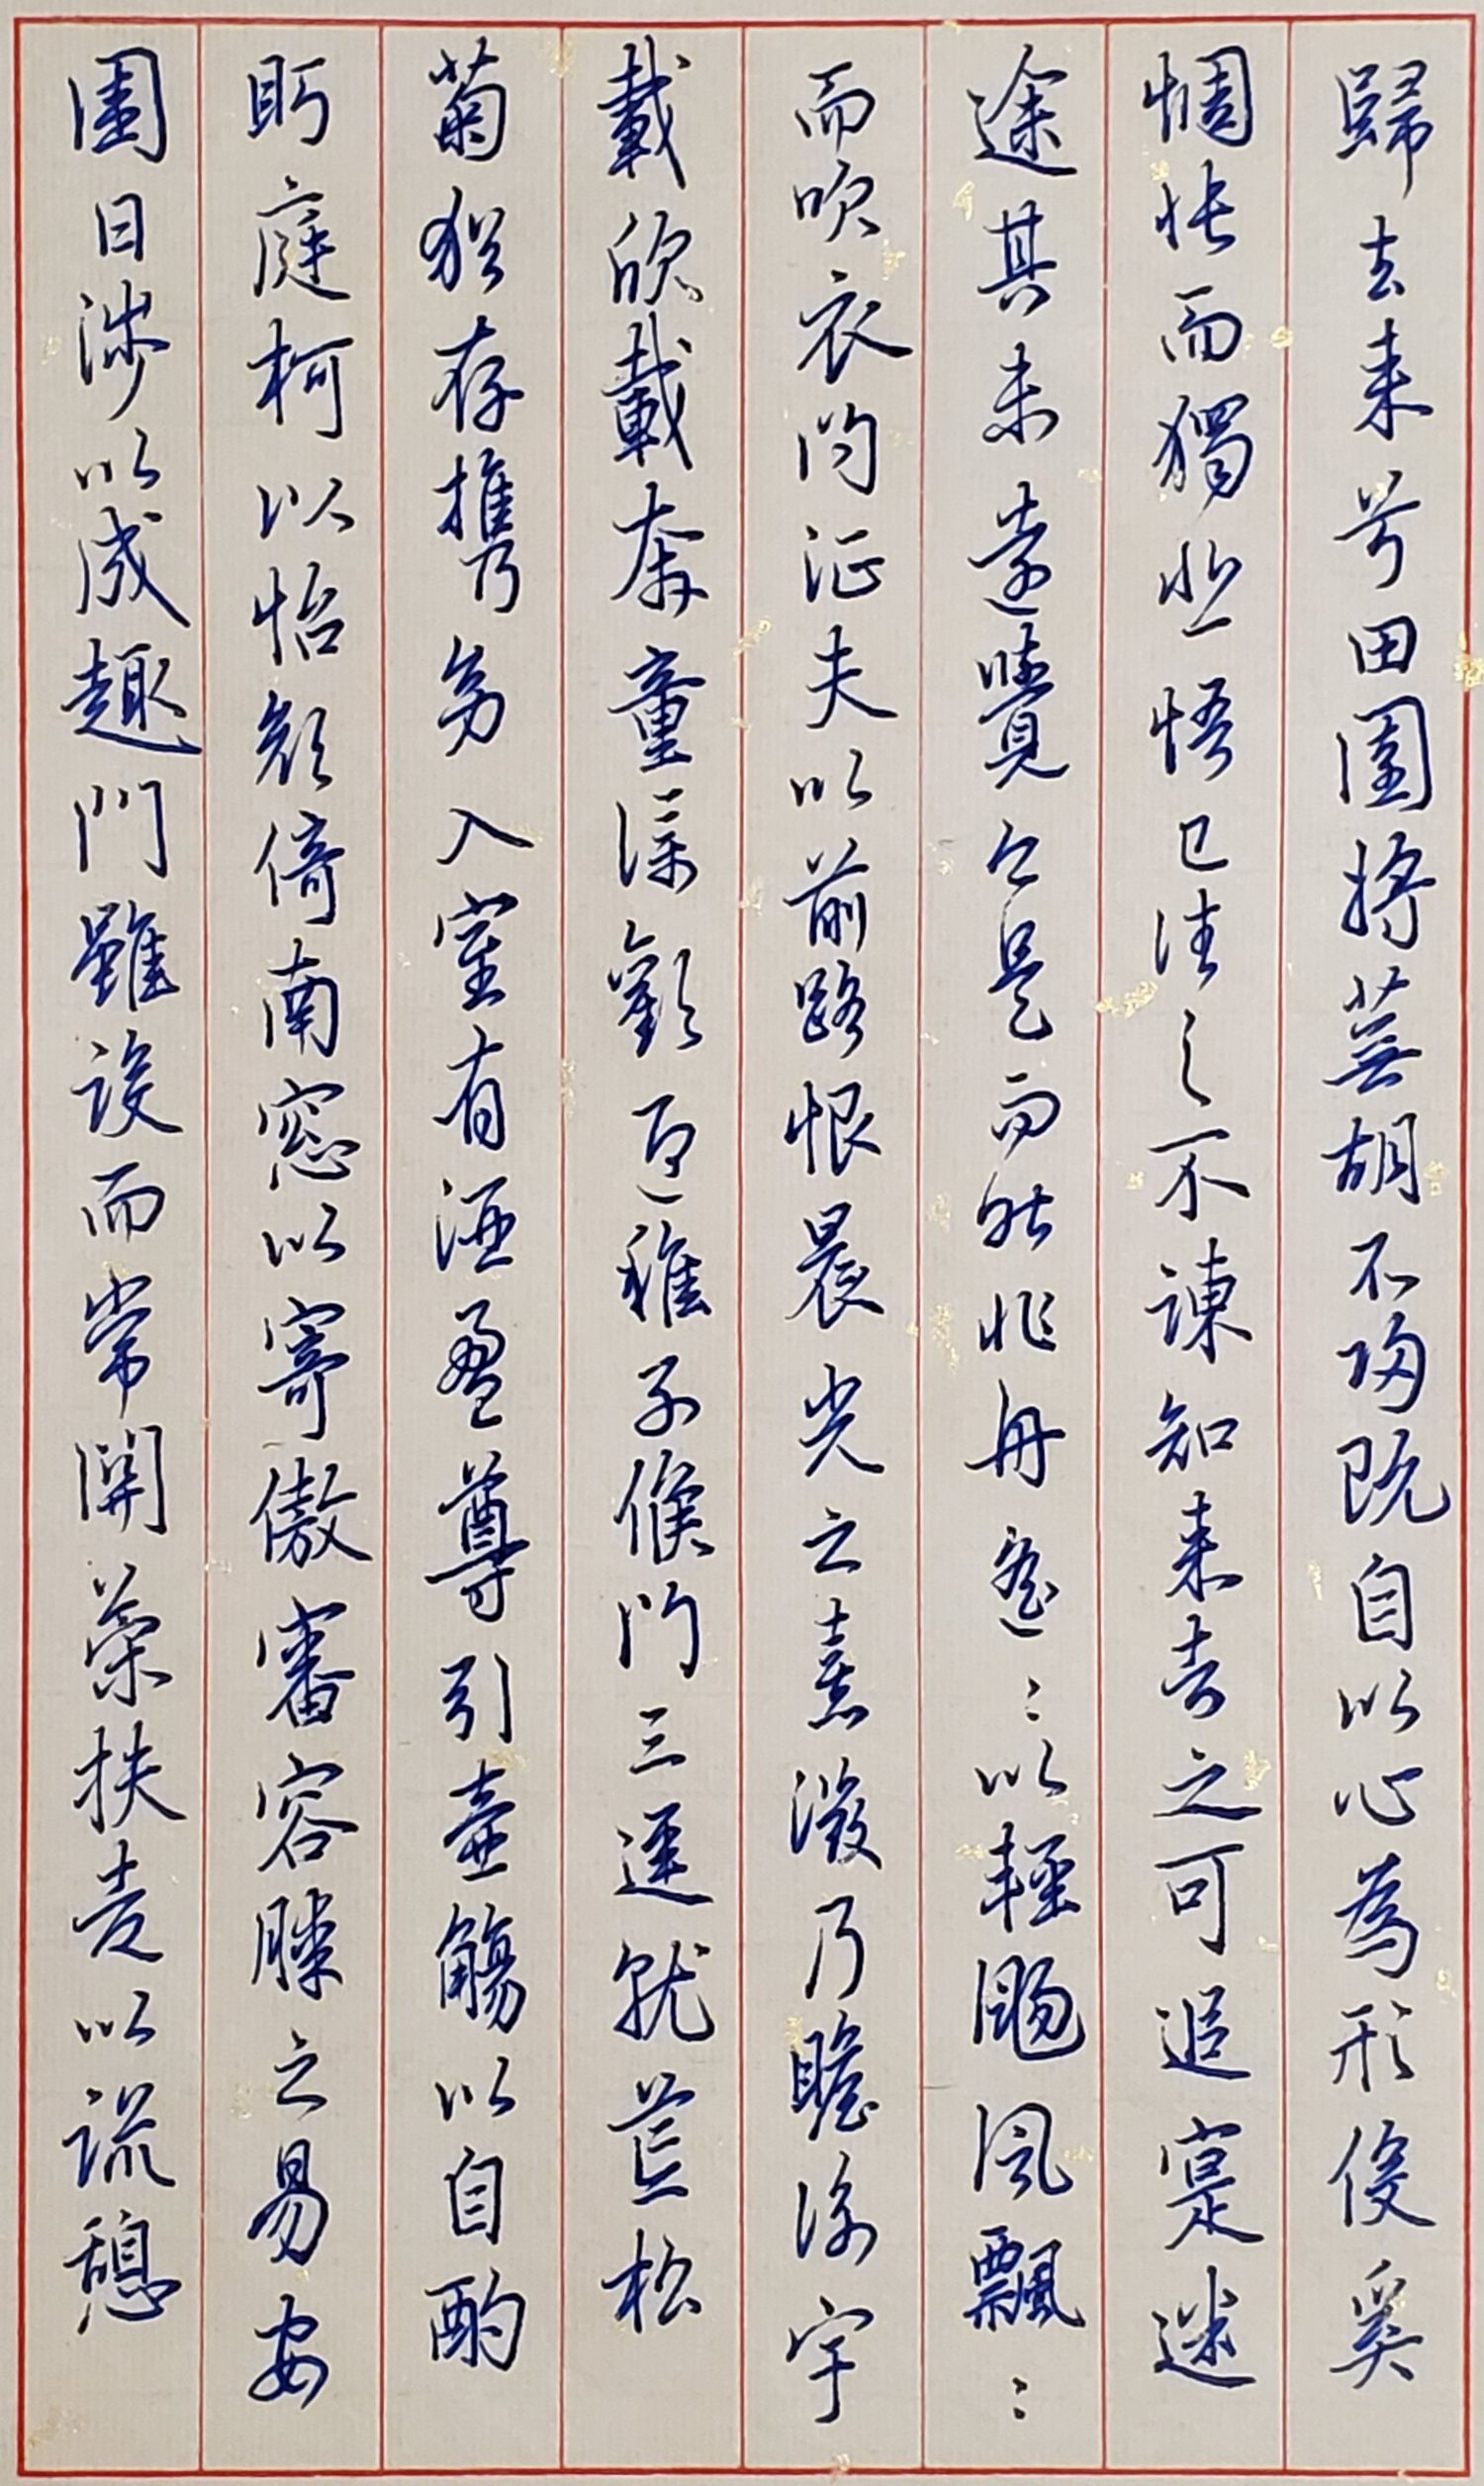 歸去来兮田園将蕪胡不歸既自以心為形役奚
惆悵而獨悲悟已往之不諫知来者之可追寔迷
途其未遠覺今是而昨非舟遙〻以輕颺風飄〻
而吹衣问征夫以前路恨晨光之熹微乃瞻衡宇
載欣載奔童僕歡迎稚子候门三逕就荒松
菊猶存攜幼入室有酒盈尊引壺觴以自酌
眄庭柯以怡顔倚南窓以寄傲審容膝之易安
園日涉以成趣門雖設而常關策扶老以流憩